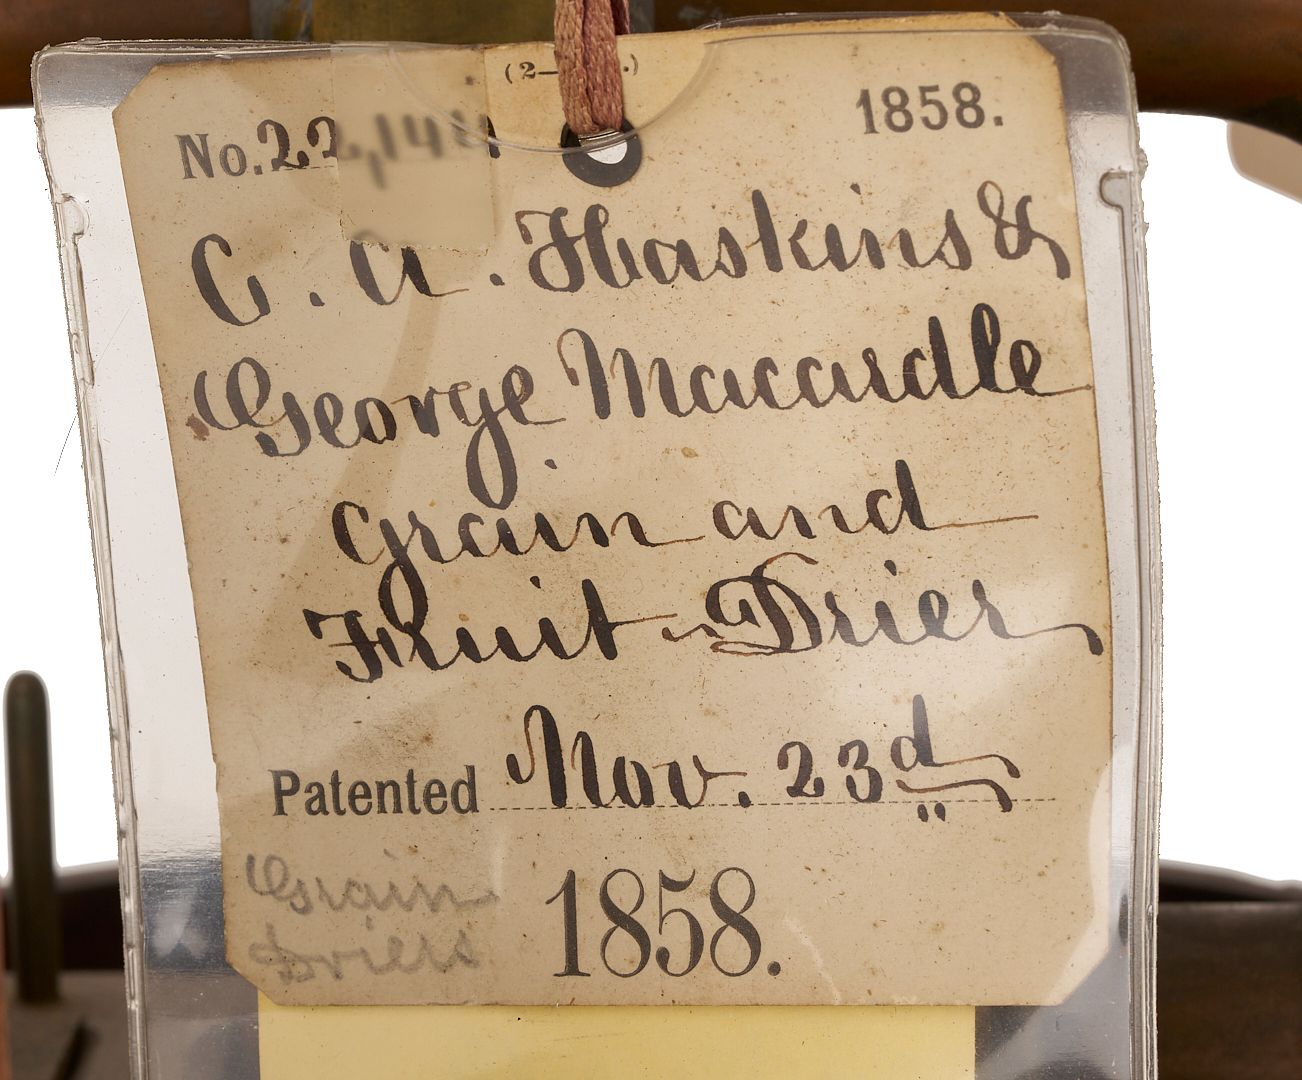 No.
1858.
C. A. Haskins &
George Macardle
Grain and
Fruit Drier
Patented Nov. 23d
1858.
Grain
Driers